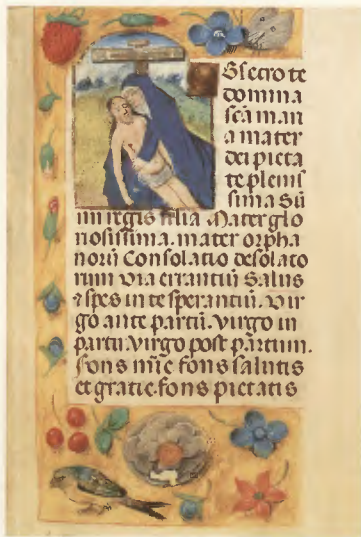 Bsecro te
domina
sca maria
a mater
dei pieta
te plenis
sima Sū
mi regis filia Mater glo
riosissima. mater orpha
norū Consolatio desolato
rum Via errantiū Salus
⁊ spes in te sperantiū. Vir
go ante partū. virgo in
partu. virgo post partum.
fons mīe fons salutis
et gratie. fons pietatis